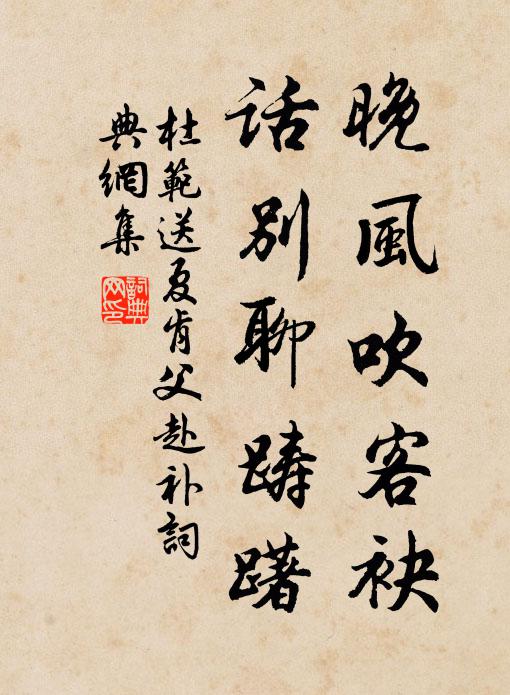 晚風吹客袂
话别聊踌躇
杜範送夏肯父赴补詞
典網集
詞典网印